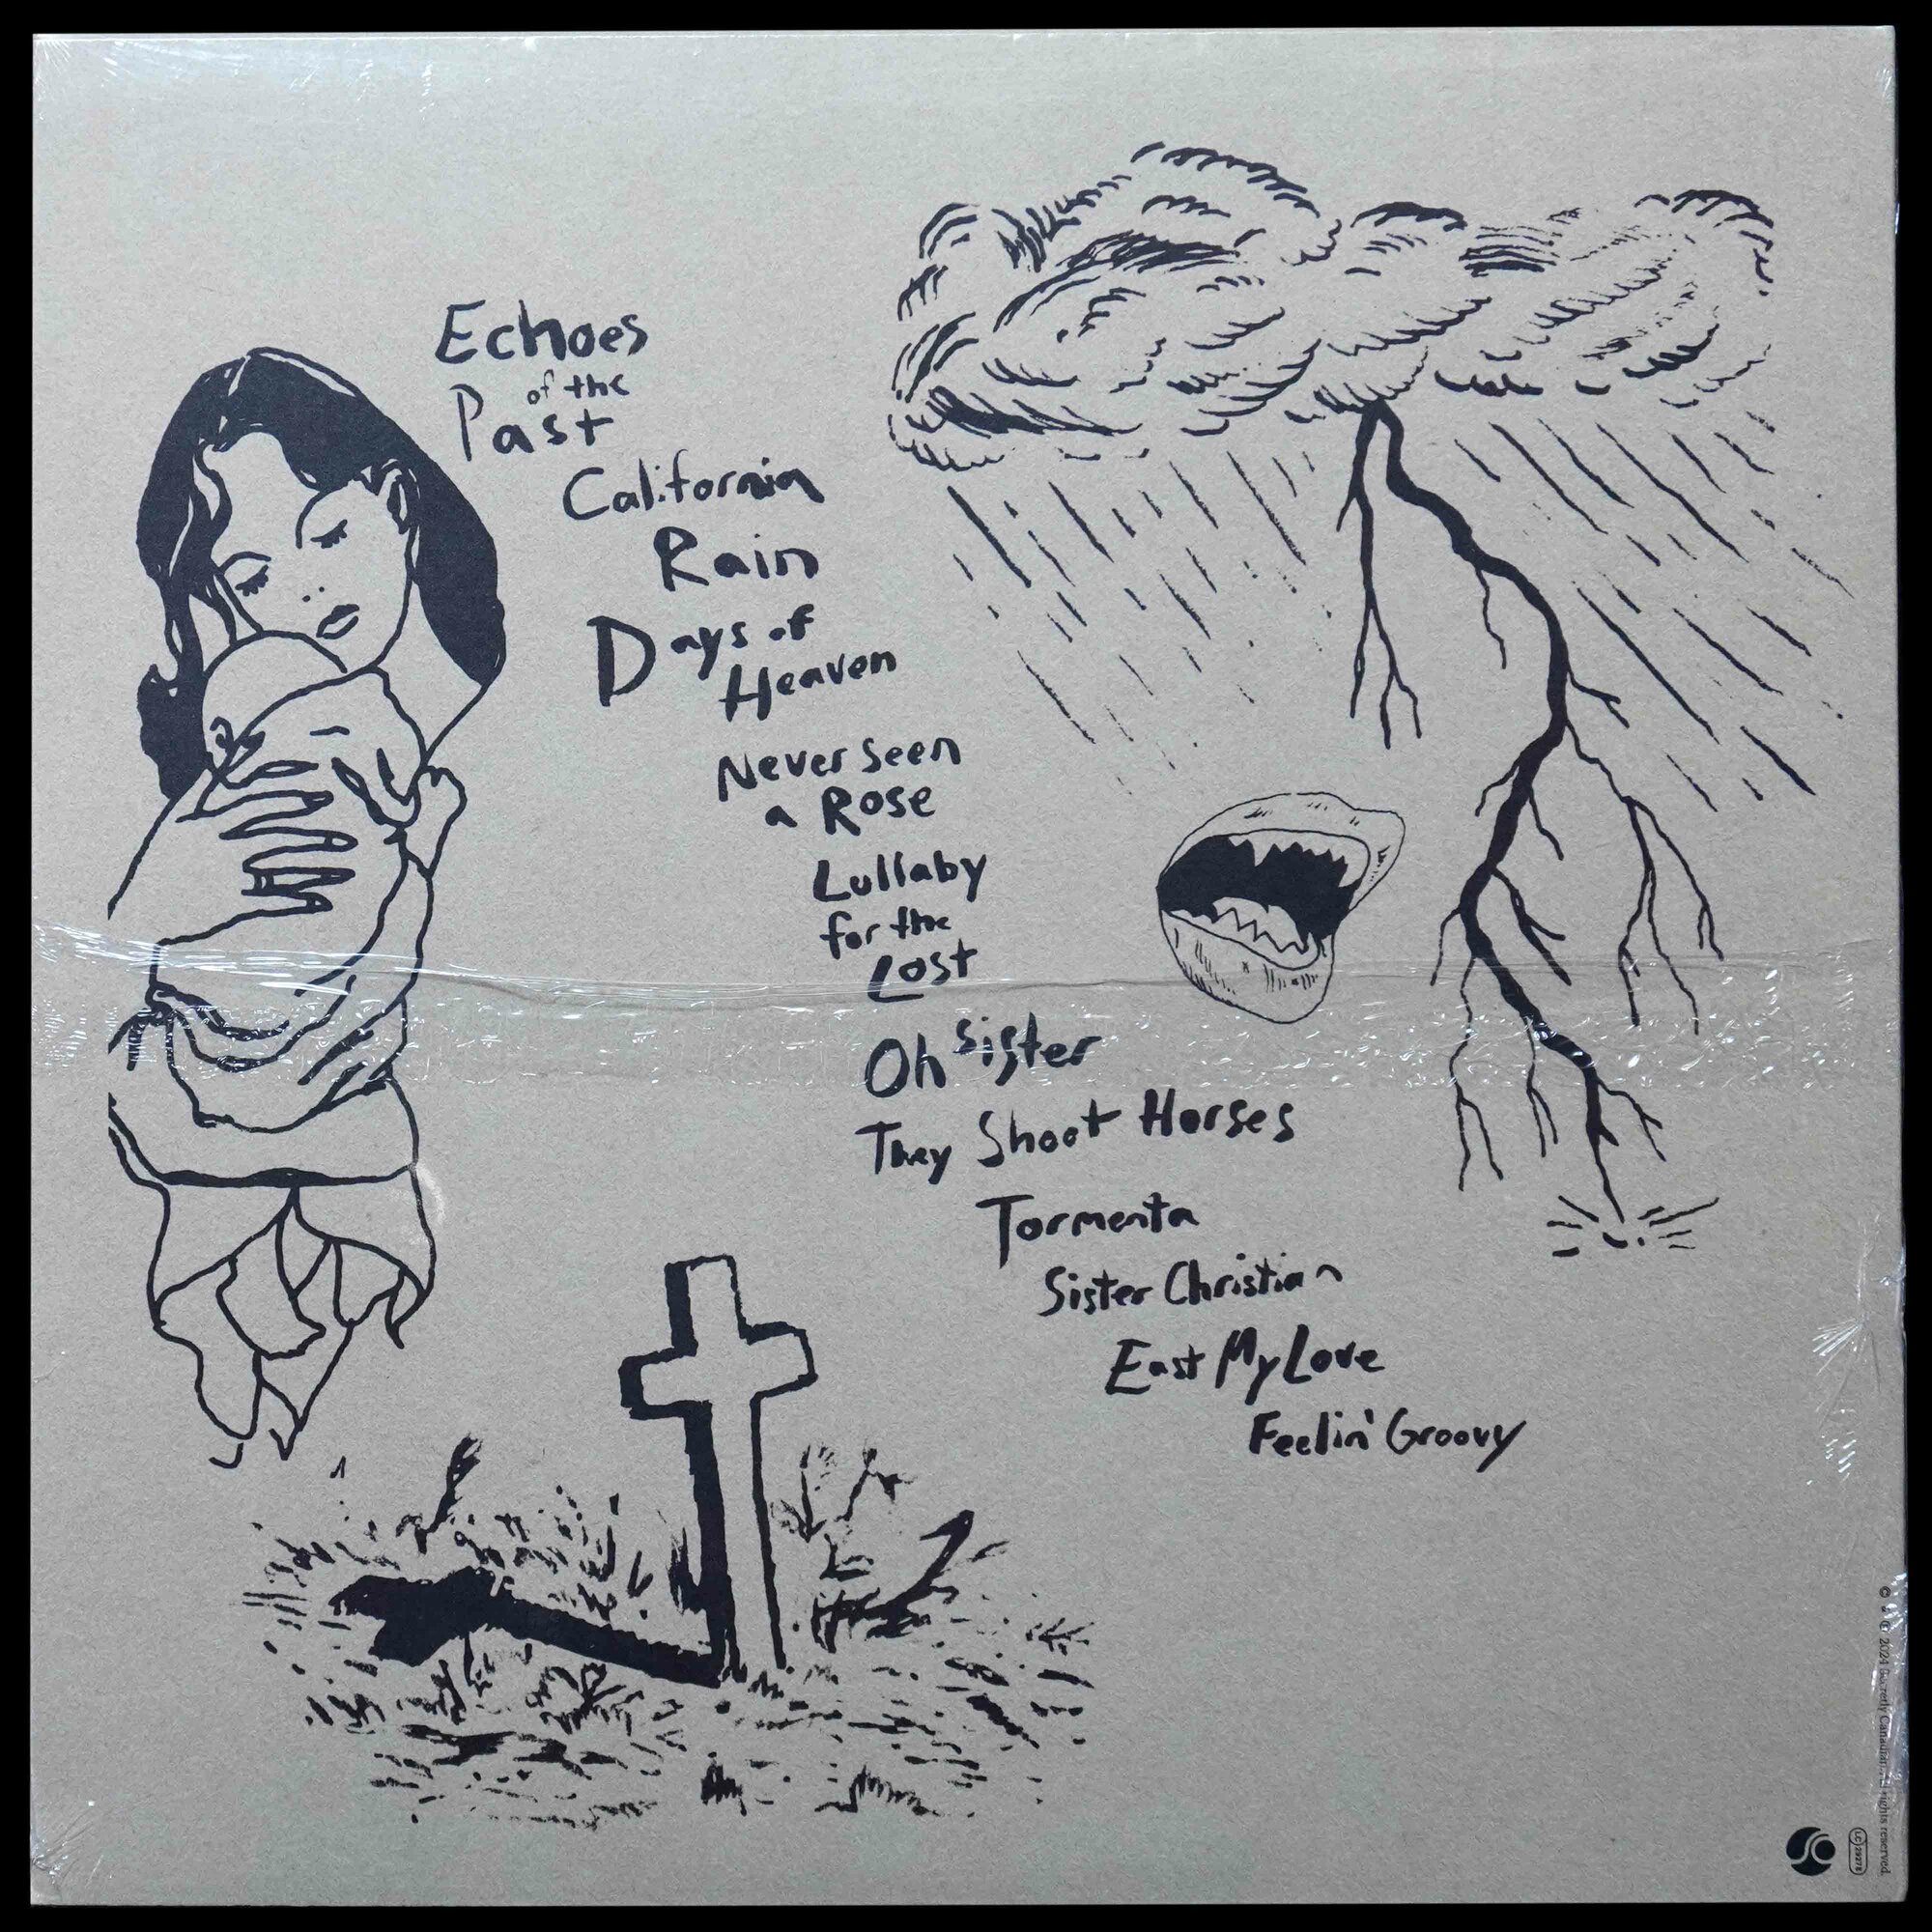 Echoes
of the
Past
California
Rain
Days of
Heaven
Never Seen
a Rose
Lullaby
for the
Lost
Oh Sister
They Shoot Horses
Tormenta
Sister Christian
East My Love
Feelin' Groovy
© 2024 Canadian. rights reserved.
SC
LC